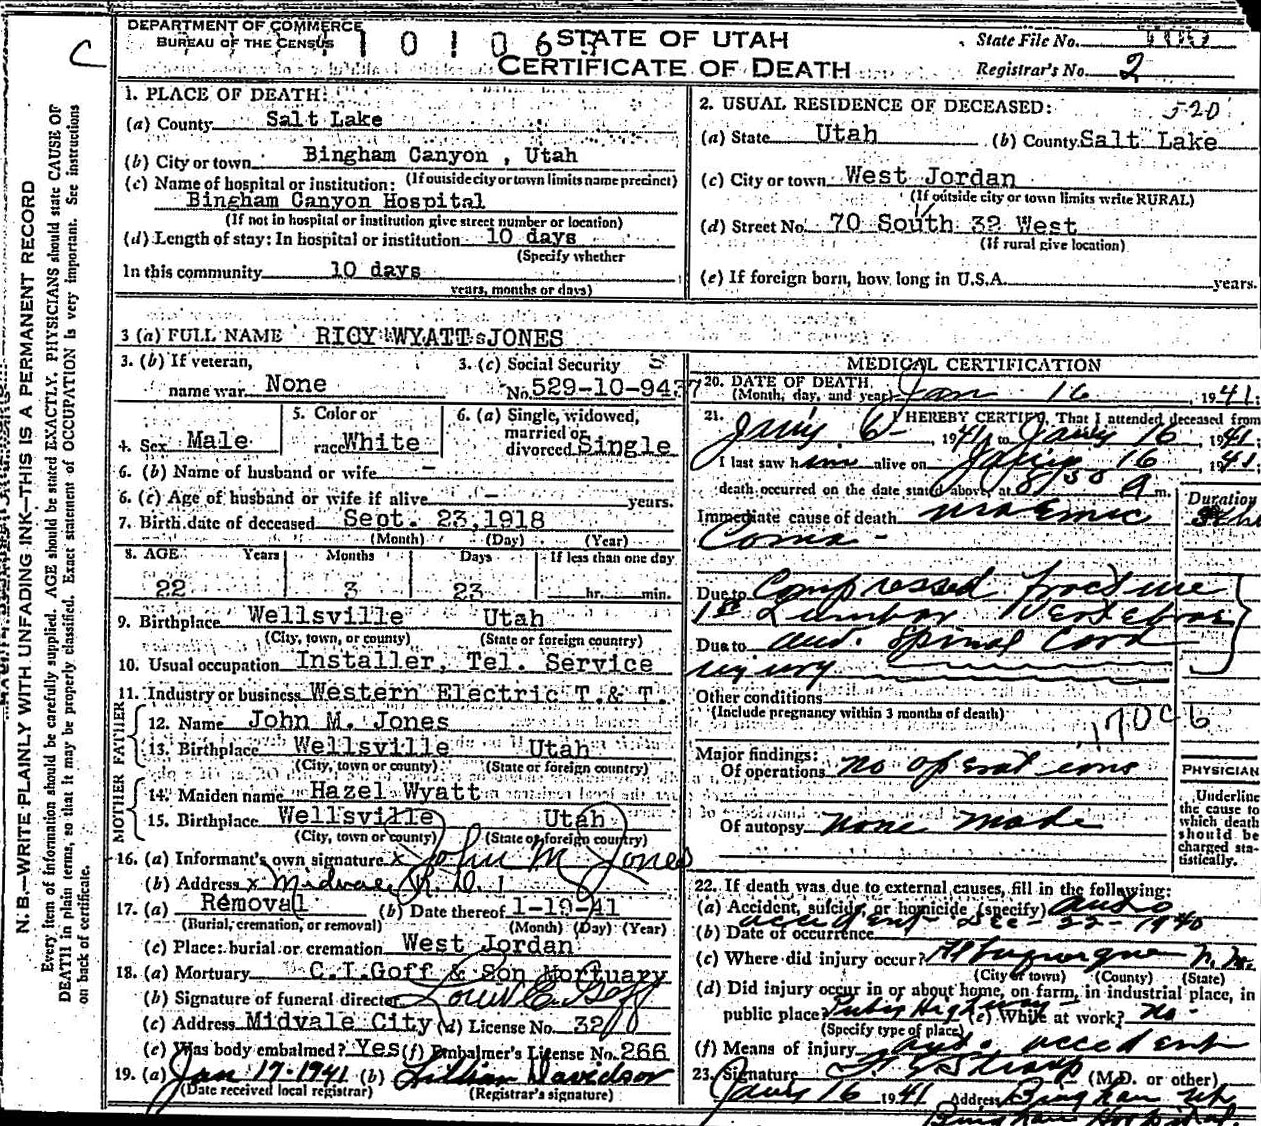 DEPARTMENT OF COMMERCE
BUREAU OF THE CENSUS
STATE OF UTAH
CERTIFICATE OF DEATH
State File No.
Registrar's No. 2
C
N. B.—WRITE PLAINLY WITH UNFADING INK—THIS IS A PERMANENT RECORD
Every item of information should be carefully supplied. AGE should be stated EXACTLY. PHYSICIANS should state CAUSE OF
DEATH in plain terms, so that it may be properly classified. Exact statement of OCCUPATION is very important. See instructions
on back of certificate.
1. PLACE OF DEATH:
(a) County Salt Lake
(b) City or town Bingham Canyon , Utah
(If outside city or town limits name precinct)
(c) Name of hospital or institution:
Bingham Canyon Hospital
(If not in hospital or institution give street number or location)
(d) Length of stay: In hospital or institution 10 days
(Specify whether
In this community 10 days
years, months or days)
2. USUAL RESIDENCE OF DECEASED: 520
(a) State Utah (b) County Salt Lake
(c) City or town West Jordan
(If outside city or town limits write RURAL)
(d) Street No. 70 South 32 West
(If rural give location)
(e) If foreign born, how long in U.S.A. years.
3 (a) FULL NAME RICY WYATT JONES
3. (b) If veteran,
name war None
3. (c) Social Security
No. 529-10-9437
4. Sex Male
5. Color or
race White
6. (a) Single, widowed,
married or
divorced Single
6. (b) Name of husband or wife —
6. (c) Age of husband or wife if alive — years.
7. Birth date of deceased Sept. 23, 1918
(Month) (Day) (Year)
8. AGE Years Months Days If less than one day
22 3 23 hr. min.
9. Birthplace Wellsville Utah
(City, town, or county) (State or foreign country)
10. Usual occupation Installer, Tel. Service
11. Industry or business Western Electric T. & T.
FATHER
12. Name John M. Jones
13. Birthplace Wellsville Utah
(City, town or county) (State or foreign country)
MOTHER
14. Maiden name Hazel Wyatt
15. Birthplace Wellsville Utah
(City, town or county) (State or foreign country)
16. (a) Informant's own signature x John M Jones
(b) Address x Midvale R. D. 1
17. (a) Removal (b) Date thereof 1-19-41
(Burial, cremation, or removal) (Month) (Day) (Year)
(c) Place: burial or cremation West Jordan
18. (a) Mortuary C.T.Goff & Son Mortuary
(b) Signature of funeral director Louis E. Goff
(c) Address Midvale City (d) License No. 320
(e) Was body embalmed? Yes (f) Embalmer's License No. 266
19. (a) Jan 17-1941 (b) Lillian Davidson
(Date received local registrar) (Registrar's signature)
MEDICAL CERTIFICATION
20. DATE OF DEATH
(Month, day, and year) Jan 16, 1941
21. I HEREBY CERTIFY, That I attended deceased from
Jany 6, 1941, to Jany 16, 1941;
I last saw him alive on Jany 16, 1941;
death occurred on the date stated above, at 8/30 a m.
Duration
Immediate cause of death uraemic
Coma -
Due to Compressed fracture
1st Lumbar Vertebrae
Due to and Spinal Cord
injury
Other conditions
(Include pregnancy within 3 months of death)
170 c b
Major findings:
Of operations no operations
Of autopsy none made
PHYSICIAN
Underline
the cause to
which death
should be
charged sta-
tistically.
22. If death was due to external causes, fill in the following:
(a) Accident, suicide, or homicide (specify) auto
accident
(b) Date of occurrence Dec - 22 - 1940
(c) Where did injury occur? Albuquerque N. M.
(City or town) (County) (State)
(d) Did injury occur in or about home, on farm, in industrial place, in
public place? Highway (e) While at work? no -
(Specify type of place)
(f) Means of injury auto accident
23. Signature (M.D. or other)
Jany 16 1941 Address Bingham Ut
Bingham Hospital.